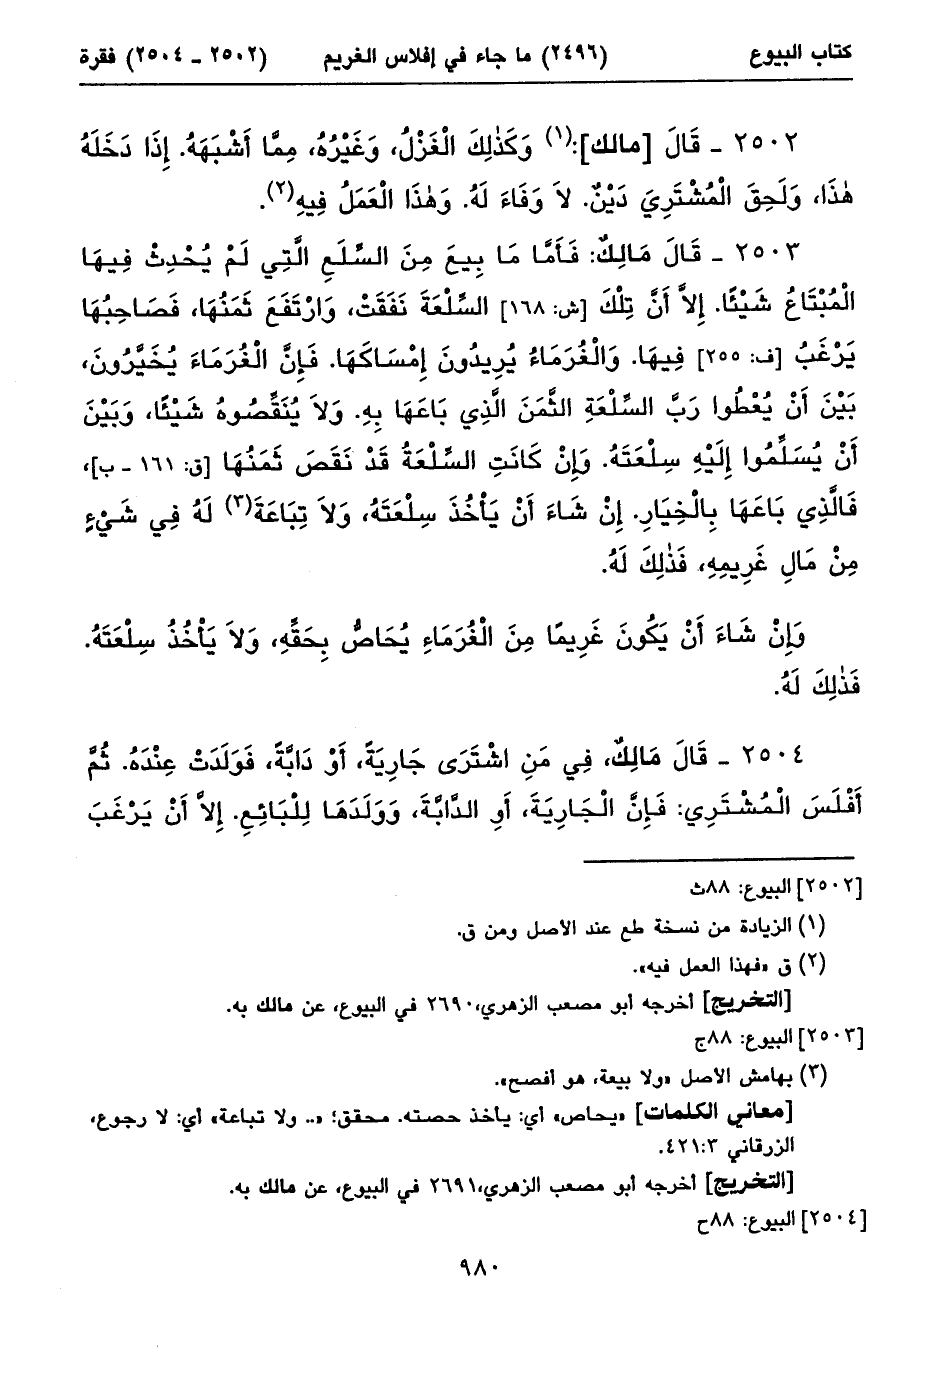 كتاب البيوع (٢٤٩٦) ما جاء في إفلاس الغريم (٢٥٠٢ ـ ٢٥٠٤) فقرة
٢٥٠٢ ـ قَالَ [مالك]:(١) وَكَذٰلِكَ الْغَزْلُ، وَغَيْرُهُ، مِمَّا أَشْبَهَهُ. إِذَا دَخَلَهُ
هٰذَا، وَلَحِقَ الْمُشْتَرِيَ دَيْنٌ. لاَ وَفَاءَ لَهُ. وَهٰذَا الْعَمَلُ فِيهِ(٢).
٢٥٠٣ ـ قَالَ مَالِكٌ: فَأَمَّا مَا بِيعَ مِنَ السِّلَعِ الَّتِي لَمْ يُحْدِثْ فِيهَا
الْمُبْتَاعُ شَيْئًا. إِلاَّ أَنَّ تِلْكَ [ش: ١٦٨] السِّلْعَةَ نَفَقَتْ، وَارْتَفَعَ ثَمَنُهَا، فَصَاحِبُهَا
يَرْغَبُ [ف: ٢٥٥] فِيهَا. وَالْغُرَمَاءُ يُرِيدُونَ إِمْسَاكَهَا. فَإِنَّ الْغُرَمَاءَ يُخَيَّرُونَ،
بَيْنَ أَنْ يُعْطُوا رَبَّ السِّلْعَةِ الثَّمَنَ الَّذِي بَاعَهَا بِهِ. وَلاَ يُنَقِّصُوهُ شَيْئًا، وَبَيْنَ
أَنْ يُسَلِّمُوا إِلَيْهِ سِلْعَتَهُ. وَإِنْ كَانَتِ السِّلْعَةُ قَدْ نَقَصَ ثَمَنُهَا [ق: ١٦١ ـ ب]،
فَالَّذِي بَاعَهَا بِالْخِيَارِ. إِنْ شَاءَ أَنْ يَأْخُذَ سِلْعَتَهُ، وَلاَ تِبَاعَةَ(٣) لَهُ فِي شَيْءٍ
مِنْ مَالِ غَرِيمِهِ، فَذٰلِكَ لَهُ.
وَإِنْ شَاءَ أَنْ يَكُونَ غَرِيمًا مِنَ الْغُرَمَاءِ يُحَاصُّ بِحَقِّهِ، وَلاَ يَأْخُذُ سِلْعَتَهُ.
فَذٰلِكَ لَهُ.
٢٥٠٤ ـ قَالَ مَالِكٌ، فِي مَنِ اشْتَرَى جَارِيَةً، أَوْ دَابَّةً، فَوَلَدَتْ عِنْدَهُ. ثُمَّ
أَفْلَسَ الْمُشْتَرِي: فَإِنَّ الْجَارِيَةَ، أَوِ الدَّابَّةَ، وَوَلَدَهَا لِلْبَائِعِ. إِلاَّ أَنْ يَرْغَبَ
[٢٥٠٢] البيوع: ٨٨ث
(١) الزيادة من نسخة طع عند الأصل ومن ق.
(٢) ق «فهذا العمل فيه».
[التخريج] أخرجه أبو مصعب الزهري، ٢٦٩٠ في البيوع، عن مالك به.
[٢٥٠٣] البيوع: ٨٨ج
(٣) بهامش الأصل «ولا بيعة، هو أفصح».
[معاني الكلمات] «يحاص» أي: يأخذ حصته. محقق؛ «.. ولا تباعة» أي: لا رجوع،
الزرقاني ٤٢١:٣.
[التخريج] أخرجه أبو مصعب الزهري، ٢٦٩١ في البيوع، عن مالك به.
[٢٥٠٤] البيوع: ٨٨ح
٩٨٠